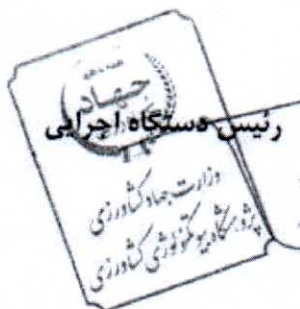 جهاد
رئیس دستگاه اجرایی
وزارت جهاد کشاورزی
پژوهشگاه بیوتکنولوژی کشاورزی